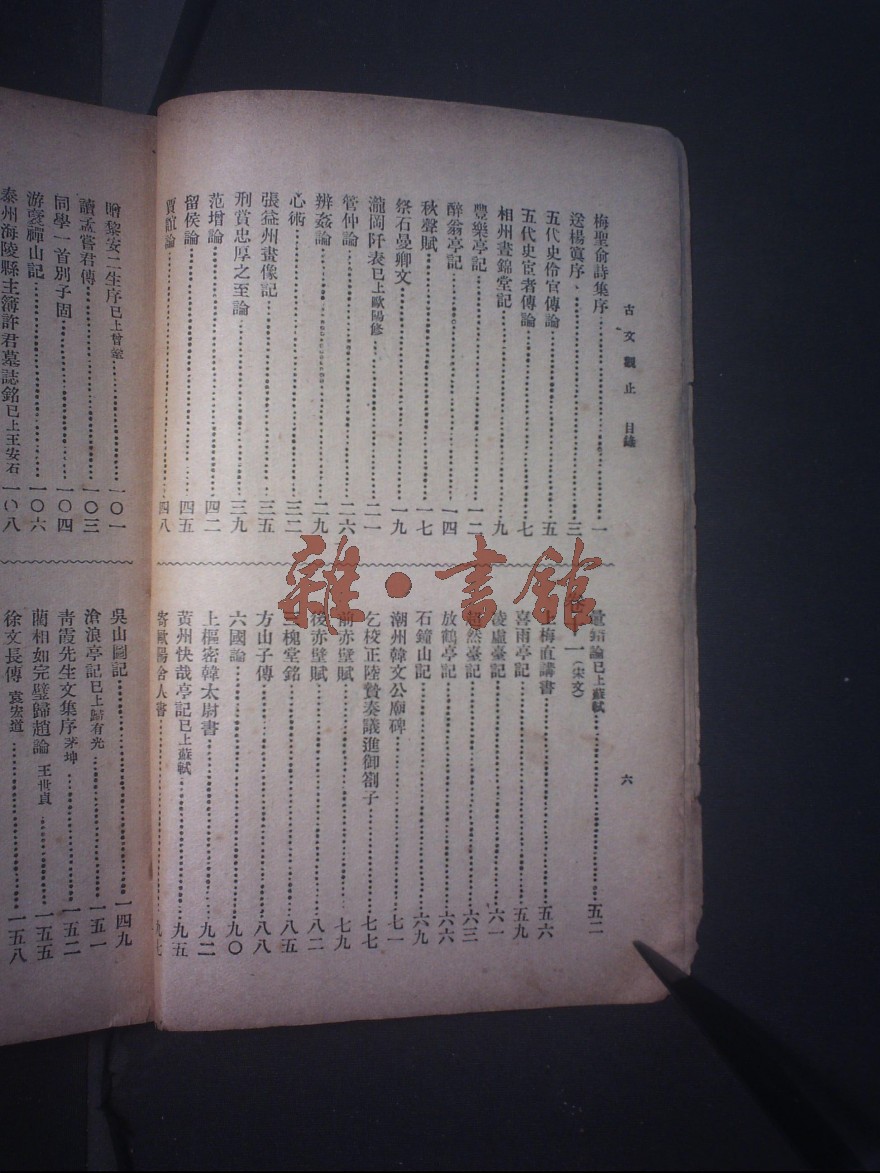 古文觀止 目錄 六
梅聖俞詩集序 一
送楊寘序 三
五代史伶官傳論 五
五代史宦者傳論 七
相州晝錦堂記 九
豐樂亭記 一二
醉翁亭記 一四
秋聲賦 一七
祭石曼卿文 一九
瀧岡阡表已上歐陽修 二一
管仲論 二六
辨姦論 二九
心術 三二
張益州畫像記 三五
刑賞忠厚之至論 三九
范增論 四二
留侯論 四五
賈誼論 四八
鼂錯論已上蘇軾 五二
卷十一(宋文)
上梅直講書 五六
喜雨亭記 五九
凌虛臺記 六一
超然臺記 六三
放鶴亭記 六六
石鐘山記 六九
潮州韓文公廟碑 七一
乞校正陸贄奏議進御劄子 七七
前赤壁賦 七九
後赤壁賦 八二
三槐堂銘 八五
方山子傳 八八
六國論 九〇
上樞密韓太尉書 九二
黃州快哉亭記已上蘇軾 九五
寄歐陽舍人書 九七
贈黎安二生序已上曾鞏 一〇一
讀孟嘗君傳 一〇三
同學一首別子固 一〇四
游褒禪山記 一〇六
泰州海陵縣主簿許君墓誌銘已上王安石 一〇八
吳山圖記 一四九
滄浪亭記已上歸有光 一五一
青霞先生文集序 茅坤 一五二
藺相如完璧歸趙論 王世貞 一五五
徐文長傳 袁宏道 一五八
雜·書館